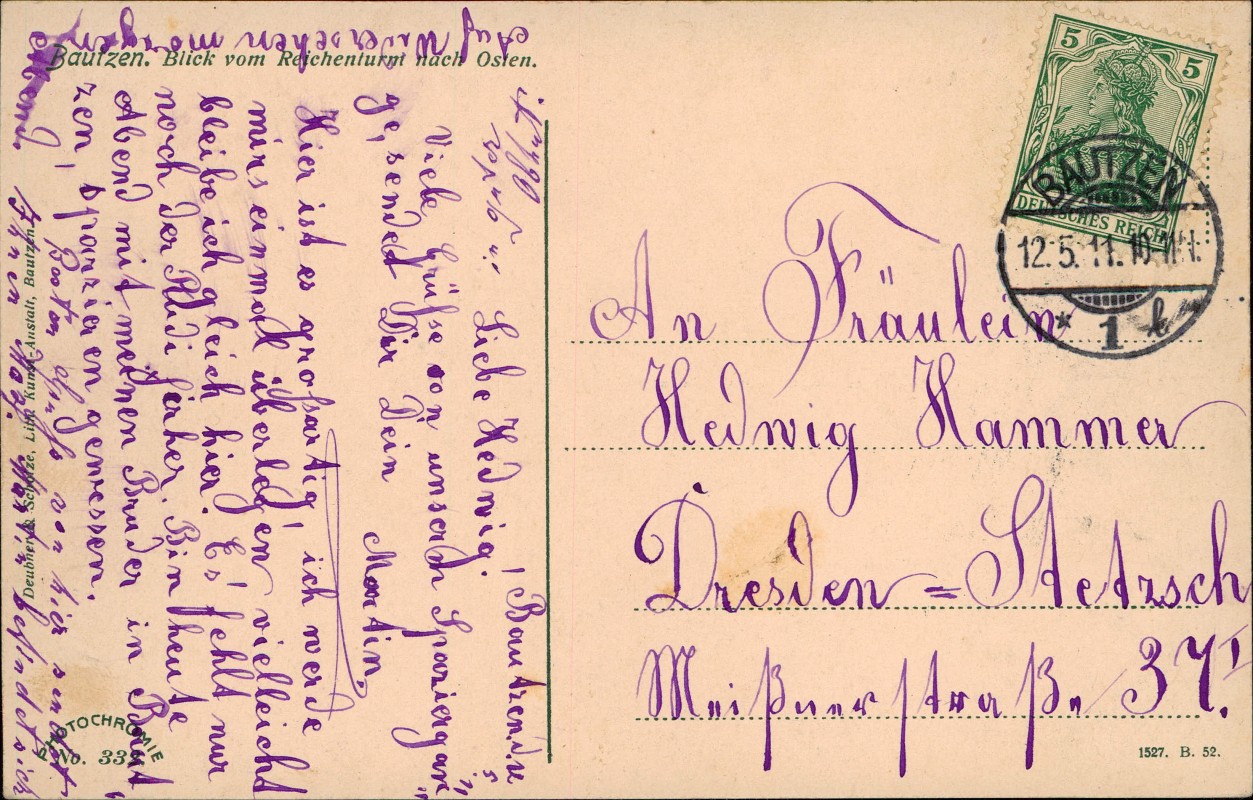 Bautzen. Blick vom Reichenturm nach Osten.
Auf Wiedersehen morgen
Abend.
Bautzen, d.
Liebe Hedwig!
Viele Grüße von unserm Spaziergan-
ge, sendet Dir Dein
Martin.
Hier ist es großartig, ich werde
mirs einmal überlegen vielleicht
bleibe ich gleich hier. Es fehlt nur
noch der Rudi hierher. Bin heute
Abend mit meinen Bruder in Baut-
zen, spazieren gewesen.
von hier sendet
Ihnen
5
5
DEUTSCHES REICH
BAUTZEN
12.5.11.10-11V.
* 1 k
An Fräulein
Hedwig Hammer
Dresden=Stetzsch
Meißnerstraße 37 I.
Deubner & Schütze, Lith. Kunst-Anstalt, Bautzen.
PHOTOCHROMIE
No. 33
1527. B. 52.